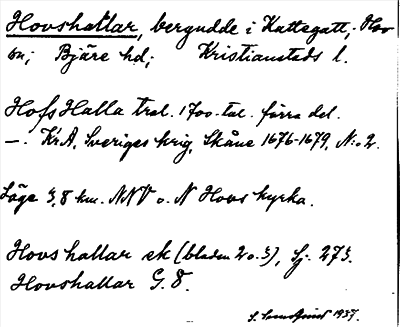 Hovshallar, bergudde i Kattegatt, Hov
sn; Bjäre hd; Kristianstads l.
Hofs Halla trol. 1700-tal. förra del.
—. KrA, Sveriges krig, Skåne 1676-1679, N:o 2.
Läge 3,8 km. NNV o. N Hovs kyrka.
Hovs hallar ek (bladen 2 o. 3), Sj. 273.
Hovshallar G. 8.
1937.